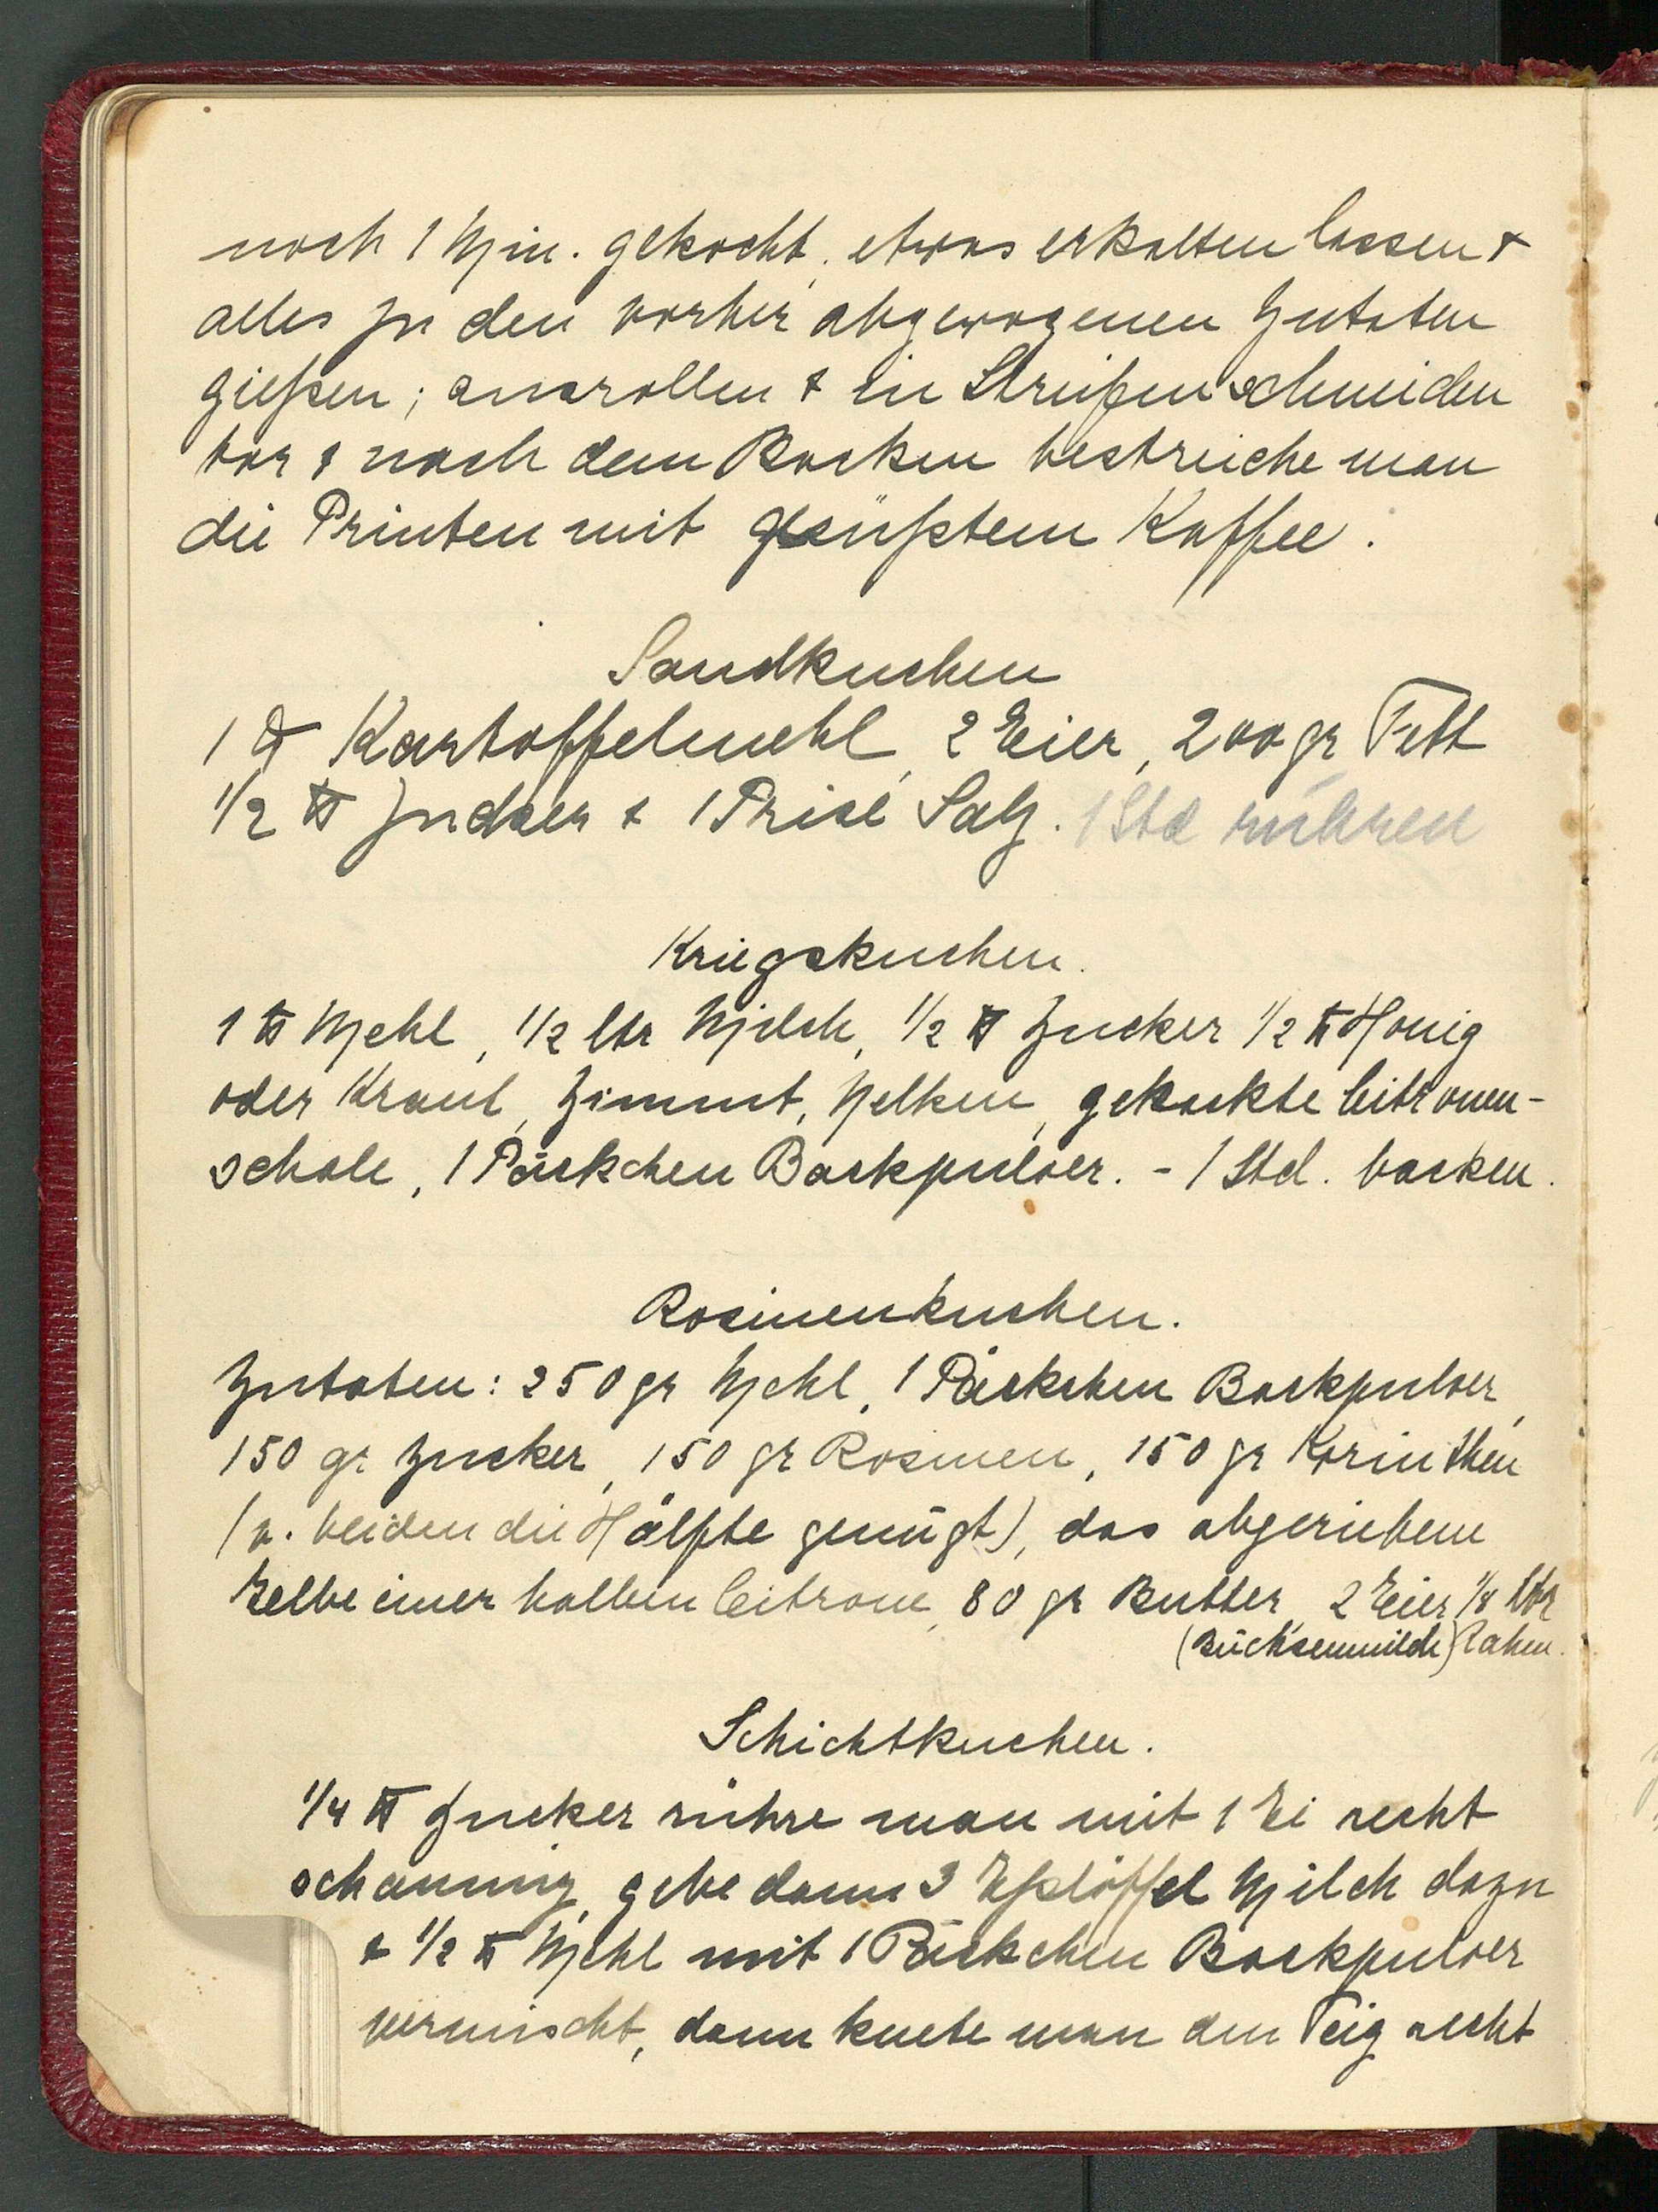 noch 1 Min. gekocht, etwas erkalten lassen &
alles zu den vorher abgewogenen Zutaten
gießen; ausrollen & in Streifen schneiden
vor & nach dem Backen bestreiche man
die Printen mit gesüßtem Kaffee.
Sandkuchen
1 ℔ Kartoffelmehl, 2 Eier, 200 gr Fett
1/2 ℔ Zucker & 1 Prise Salz. 1 Std rühren
Kriegskuchen.
1 ℔ Mehl, 1/2 ltr Milch, 1/2 ℔ Zucker 1/2 ℔ Honig
oder Kraut, Zimmt, Nelken, gehackte Citronen-
schale, 1 Päckchen Backpulver. - 1 Std. backen.
Rosinenkuchen.
Zutaten: 250 gr Mehl, 1 Päckchen Backpulver,
150 gr Zucker, 150 gr Rosinen, 150 gr Korinthen
(v. beiden die Hälfte genügt), das abgeriebene
Gelbe einer halben Citrone, 80 gr Butter, 2 Eier 1/8 ltr
(Büchsenmilch) Rahm.
Schichtkuchen.
1/4 ℔ Zucker rühre man mit 1 Ei recht
schaumig, gebe dann 3 Eßlöffel Milch dazu
& 1/2 ℔ Mehl mit 1 Päckchen Backpulver
vermischt, dann knete man den Teig recht